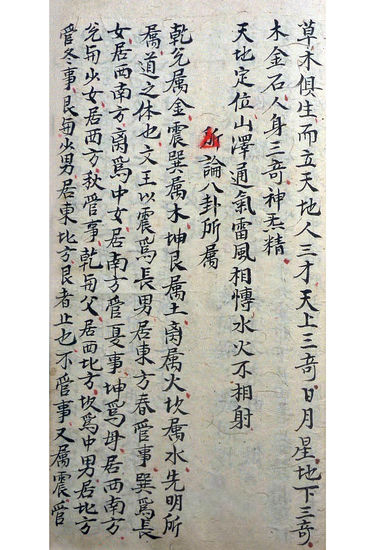 草木俱生而立天地人三才天上三竒日月星地下三竒
木金石人身三竒神炁精
天地定位山澤通氣雷風相愽水火不相射
所論八卦所属
乾兊属金震巽属木坤艮属土离属火坎属水先明所
属道之体也文王以震爲長男居東方春管事巽爲長
女居西南方离爲中女居南方管夏事坤爲母居西南方
兊爲少女居西方秋管事乾爲父居西北方坎爲中男居北方
管冬事艮爲少男居東北方艮者止也不管事又属震管